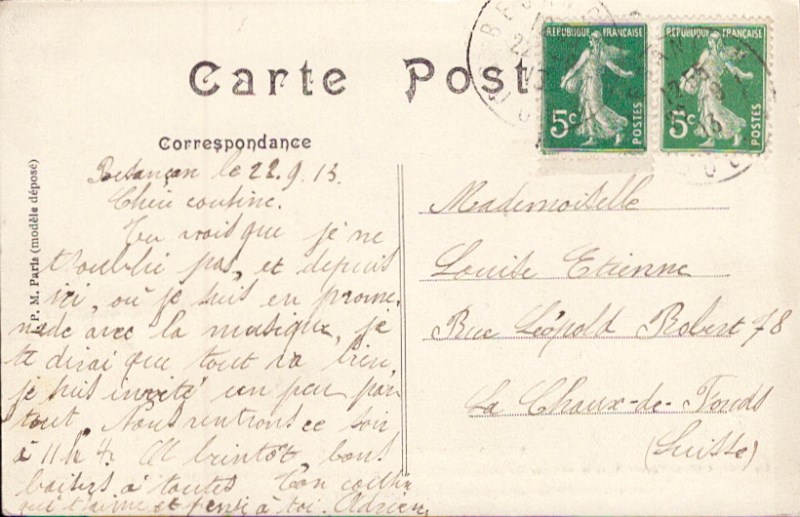 Carte Post
Correspondance
P. M. Paris (modèle déposé)
REPUBLIQUE FRANÇAISE
5c
POSTES
REPUBLIQUE FRANÇAISE
5c
POSTES
Besançon le 22.9.13.
Chère cousine.
Tu vois que je ne
t'oublie pas, et depuis
ici, où je suis en prome-
nade avec la musique, je
te dirai que tout va bien,
je suis invité un peu par
tout. Nous rentrons ce soir
à 11h
bientôt, bons
baisers à toutes Ton
qui t'aime et pense à toi. Adrien,
Mademoiselle
Louise Etienne
Rue Léopold Robert 78
La Chaux-de-Fonds
(Suisse)